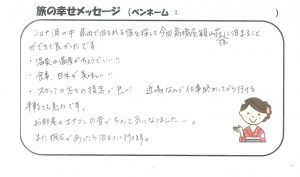 旅の幸せメッセージ (ペンネーム : )
コロナ渦の中 県内で泊まれる宿を探して今回高橋屋観山荘に泊まること
ができて良かったです。
・温泉の温度がちょうどいい!!
・食事、白米が美味しい!!
・スタッフの方々の接客が良い 近場なので仕事終わってから行ける
手軽さも魅力です。
お部屋のエアコンの音がちょっと気になりました…。
また機会があったら泊まりに行きます。